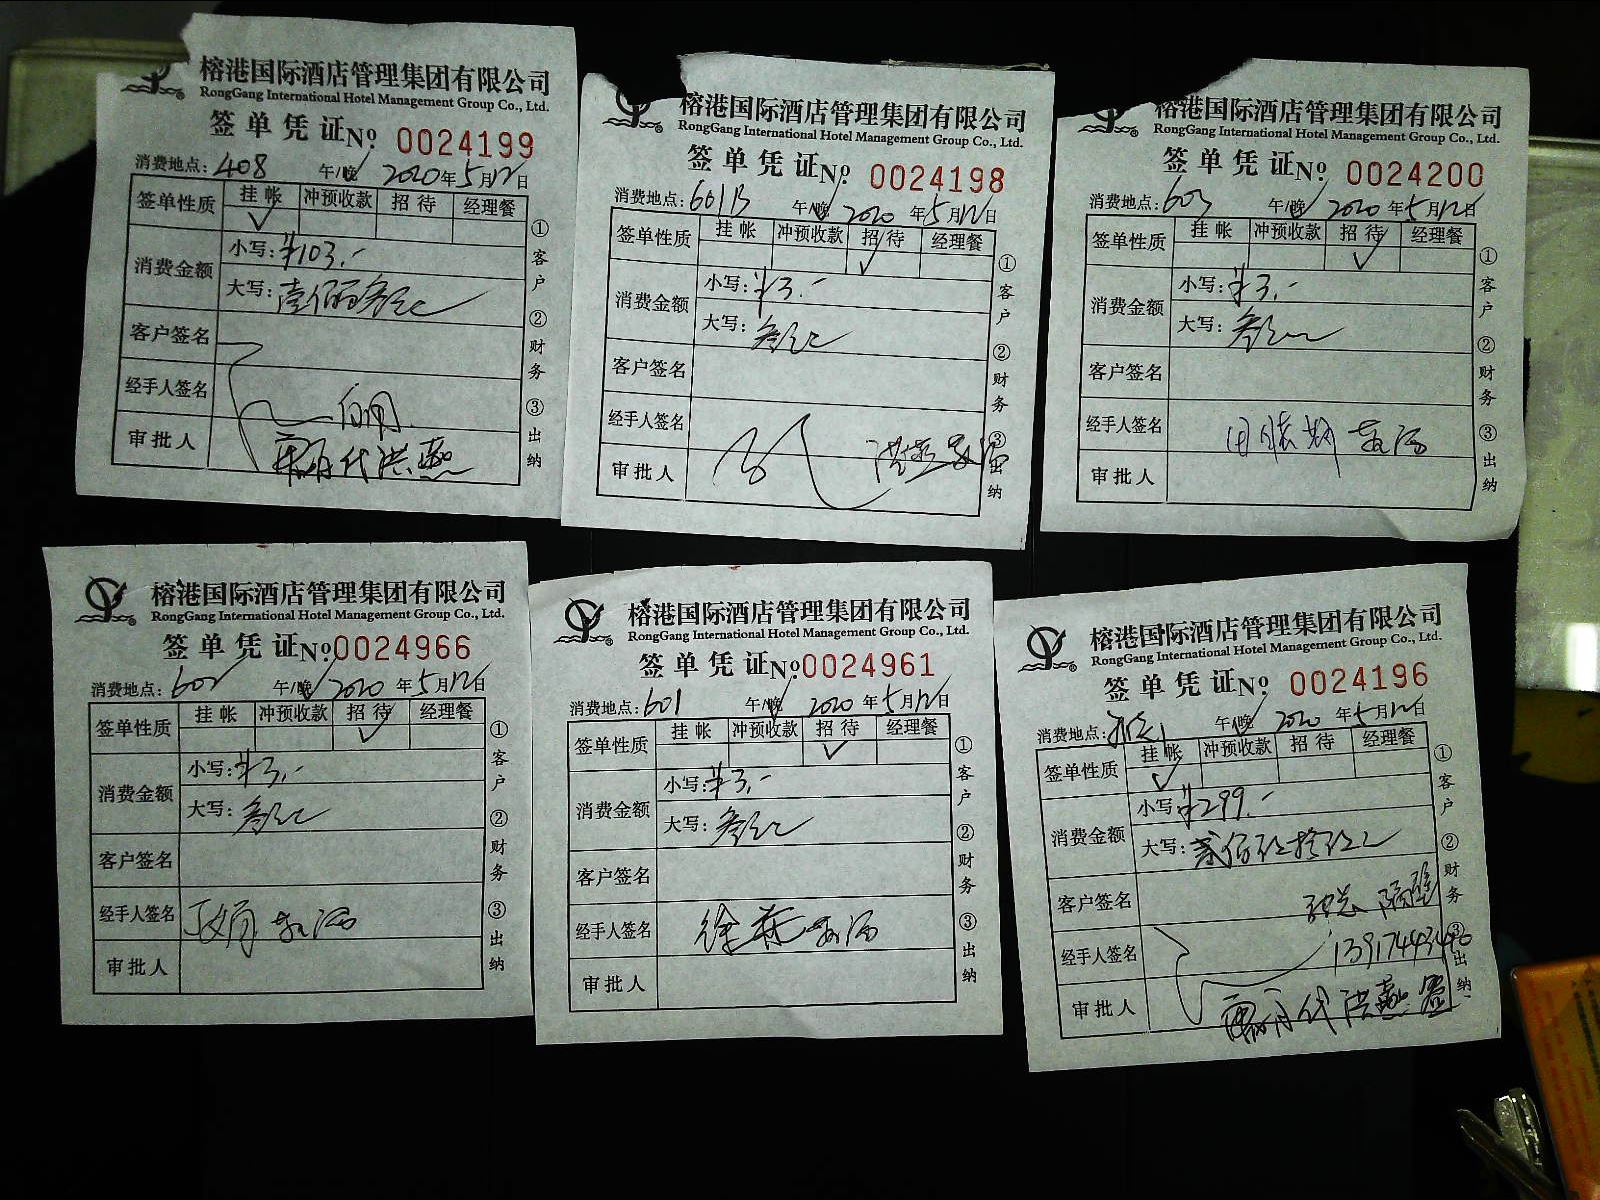 榕港国际酒店管理集团有限公司
RongGang International Hotel Management Group Co., Ltd.
签单凭证 No. 0024199
消费地点: 408 午/晚 2020年5月12日
签单性质 挂帐 冲预收款 招待 经理餐
消费金额 小写: ¥103.-
大写: 壹佰零叁元
客户签名
经手人签名
审批人 代洪燕
①客户 ②财务 ③出纳
榕港国际酒店管理集团有限公司
RongGang International Hotel Management Group Co., Ltd.
签单凭证 No. 0024198
消费地点: 601B 午/晚 2020年5月12日
签单性质 挂帐 冲预收款 招待 经理餐
消费金额 小写: ¥3.-
大写: 叁元
客户签名
经手人签名 洪燕
审批人
①客户 ②财务 ③出纳
榕港国际酒店管理集团有限公司
RongGang International Hotel Management Group Co., Ltd.
签单凭证 No. 0024200
消费地点: 603 午/晚 2020年5月12日
签单性质 挂帐 冲预收款 招待 经理餐
消费金额 小写: ¥3.-
大写: 叁元
客户签名
经手人签名
审批人
①客户 ②财务 ③出纳
榕港国际酒店管理集团有限公司
RongGang International Hotel Management Group Co., Ltd.
签单凭证 No. 0024966
消费地点: 602 午/晚 2020年5月12日
签单性质 挂帐 冲预收款 招待 经理餐
消费金额 小写: ¥3.-
大写: 叁元
客户签名
经手人签名
审批人
①客户 ②财务 ③出纳
榕港国际酒店管理集团有限公司
RongGang International Hotel Management Group Co., Ltd.
签单凭证 No. 0024961
消费地点: 601 午/晚 2020年5月12日
签单性质 挂帐 冲预收款 招待 经理餐
消费金额 小写: ¥3.-
大写: 叁元
客户签名
经手人签名 徐
审批人
①客户 ②财务 ③出纳
榕港国际酒店管理集团有限公司
RongGang International Hotel Management Group Co., Ltd.
签单凭证 No. 0024196
消费地点: 午/晚 2020年5月12日
签单性质 挂帐 冲预收款 招待 经理餐
消费金额 小写: ¥299.-
大写: 贰佰玖拾玖元
客户签名
经手人签名
审批人 代洪燕签
①客户 ②财务 ③出纳